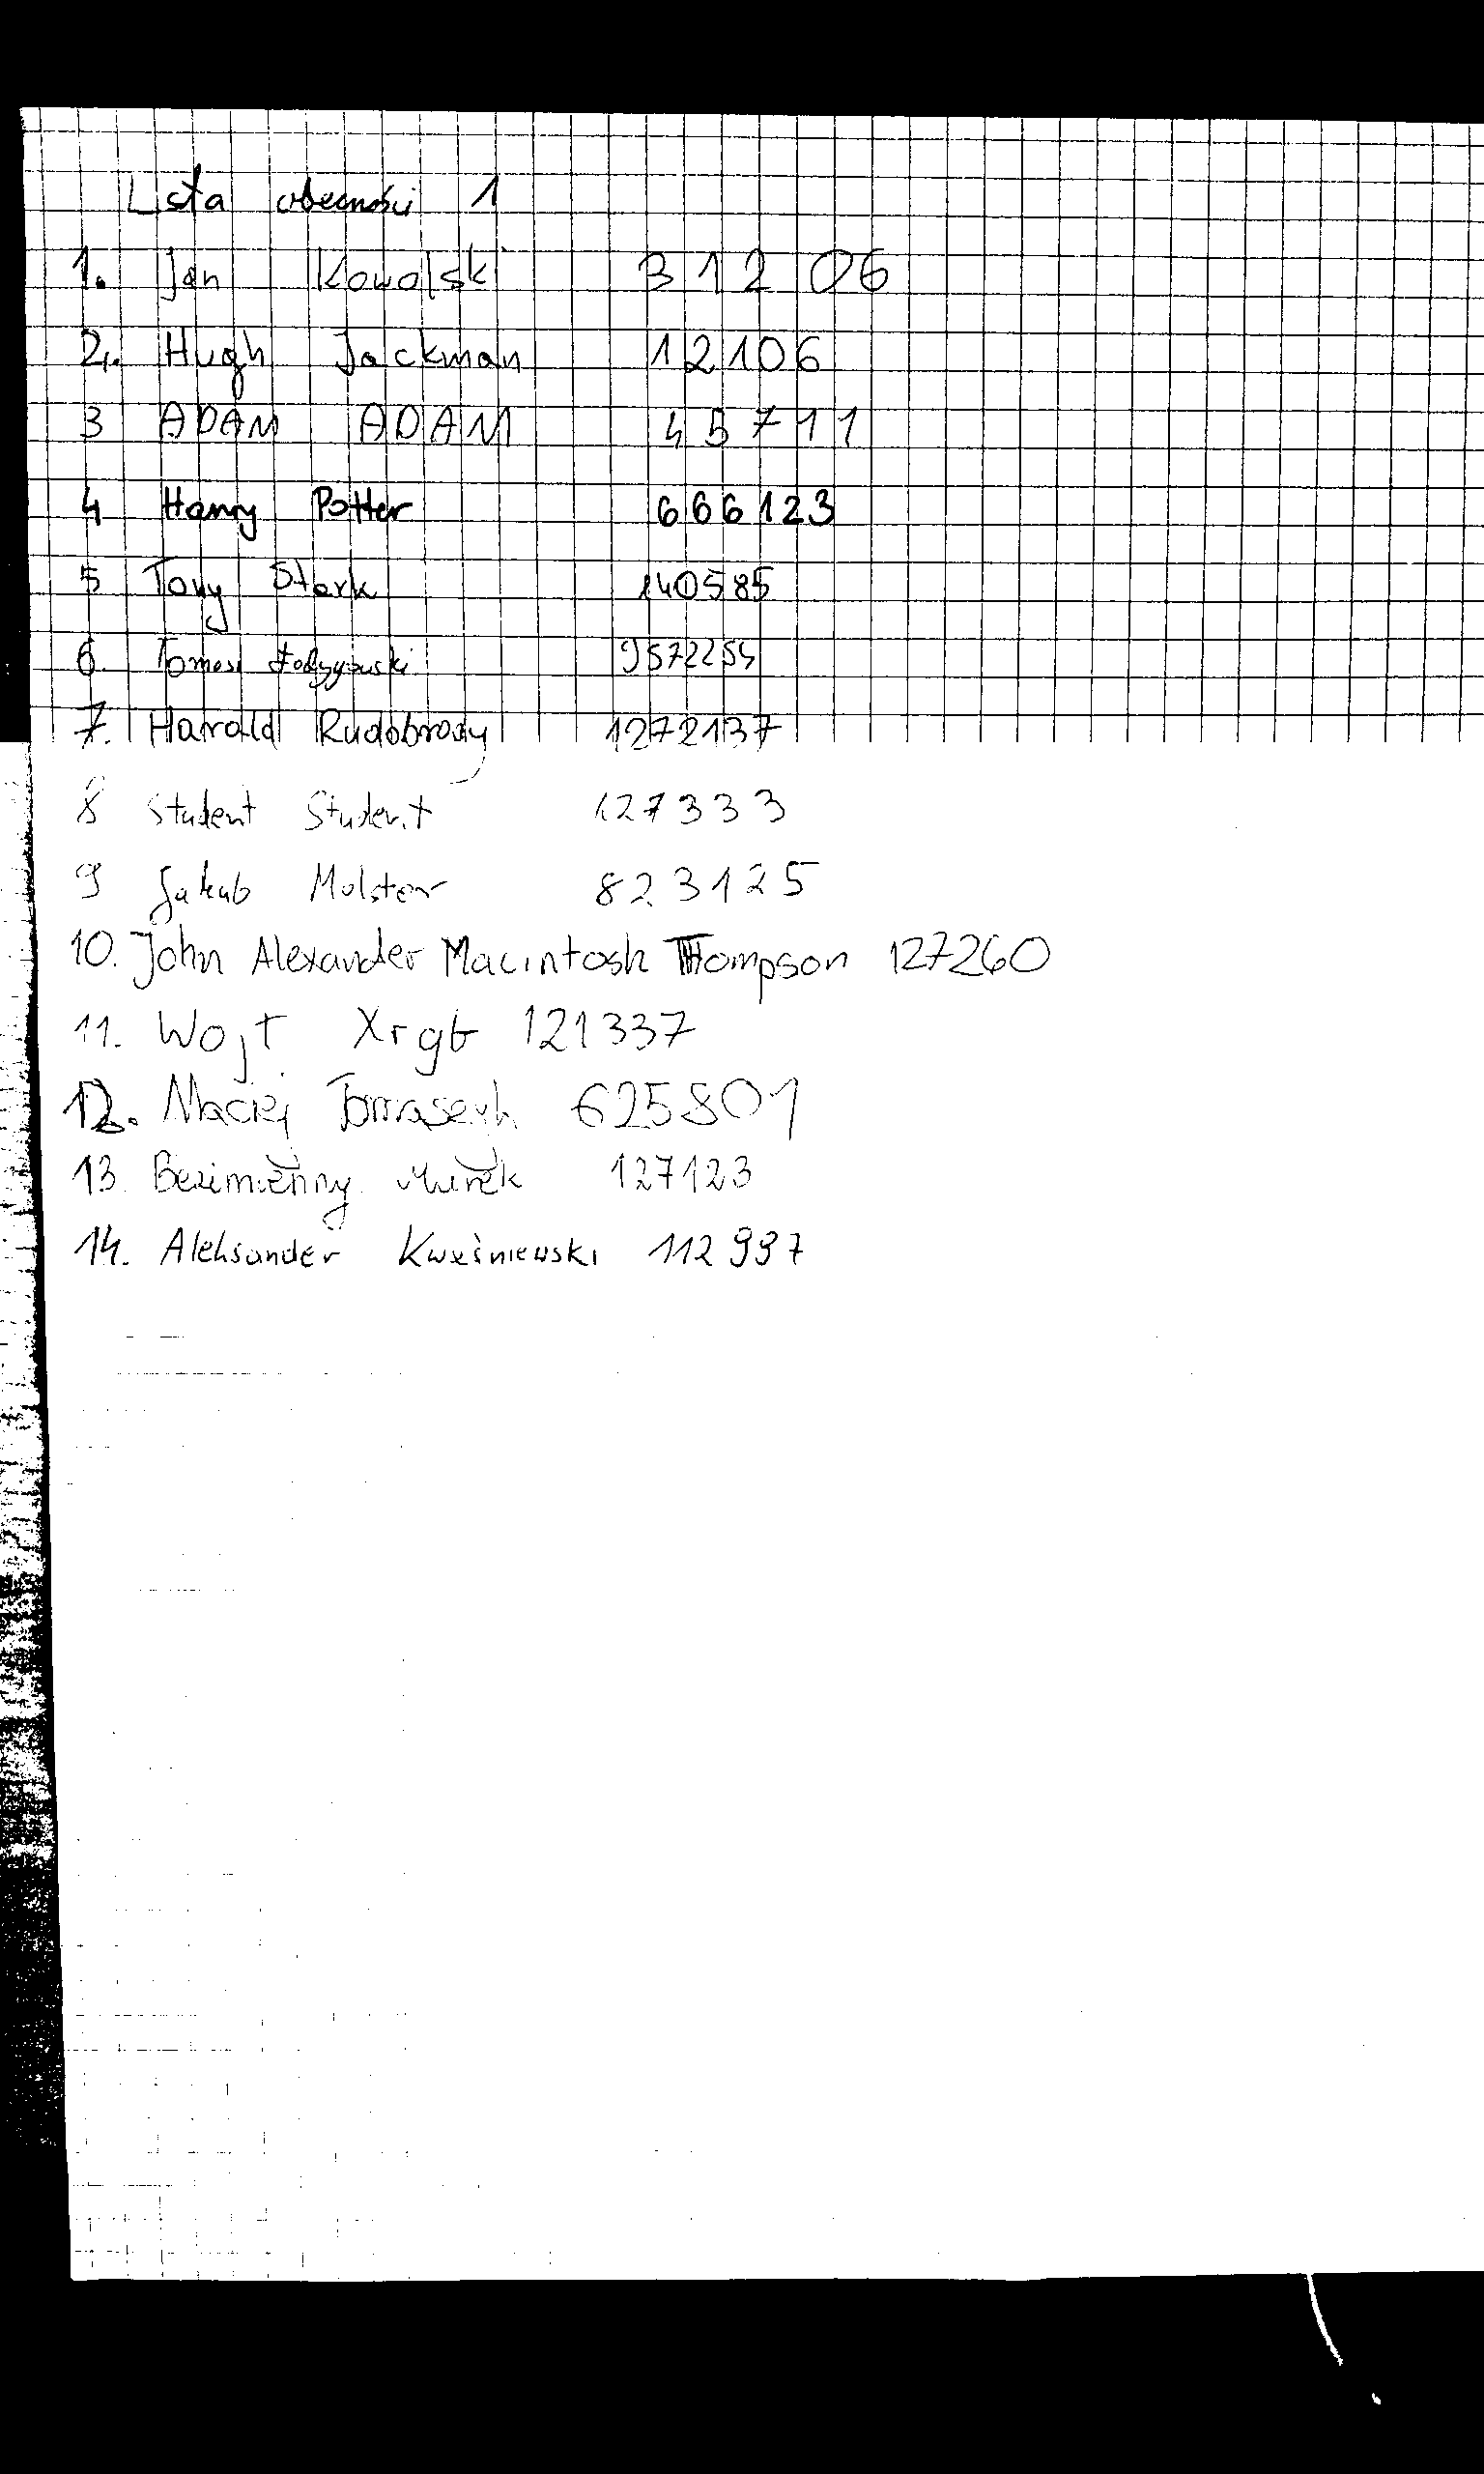 Lista obecności 1
1. Jan Kowalski 31206
2. Hugh Jackman 12106
3 ADAM ADAM 45711
4 Harry Potter 666123
5 Tony Stark 140585
6. Tomasz 9572254
7. Harald Rudobrody 1272137
8 Student Student 127333
9 Jakub Molster 823125
10. John Alexander Macintosh Thompson 127260
11. Wojt Xrgb 121337
12. Maciej 625801
13. Bezimienny Mirek 127123
14. Aleksander Kwaśniewski 112997